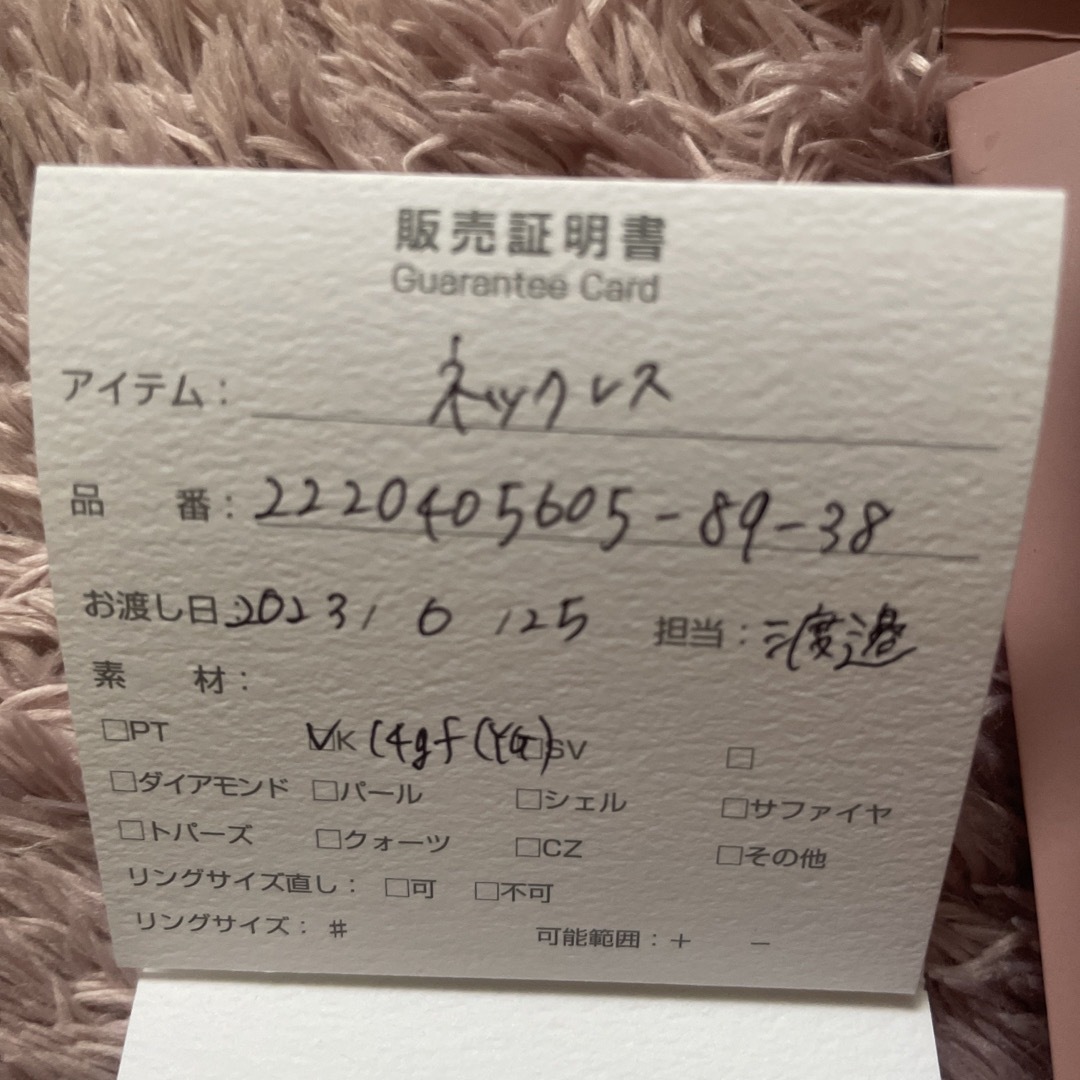 販売証明書
Guarantee Card
アイテム: ネックレス
品 番: 2220405605-89-38
お渡し日: 2023/6/25 担当: 渡邉
素 材:
□PT ☑K14gf(YG) □SV □
□ダイアモンド □パール □シェル □サファイヤ
□トパーズ □クォーツ □CZ □その他
リングサイズ直し: □可 □不可
リングサイズ: # 可能範囲: + −